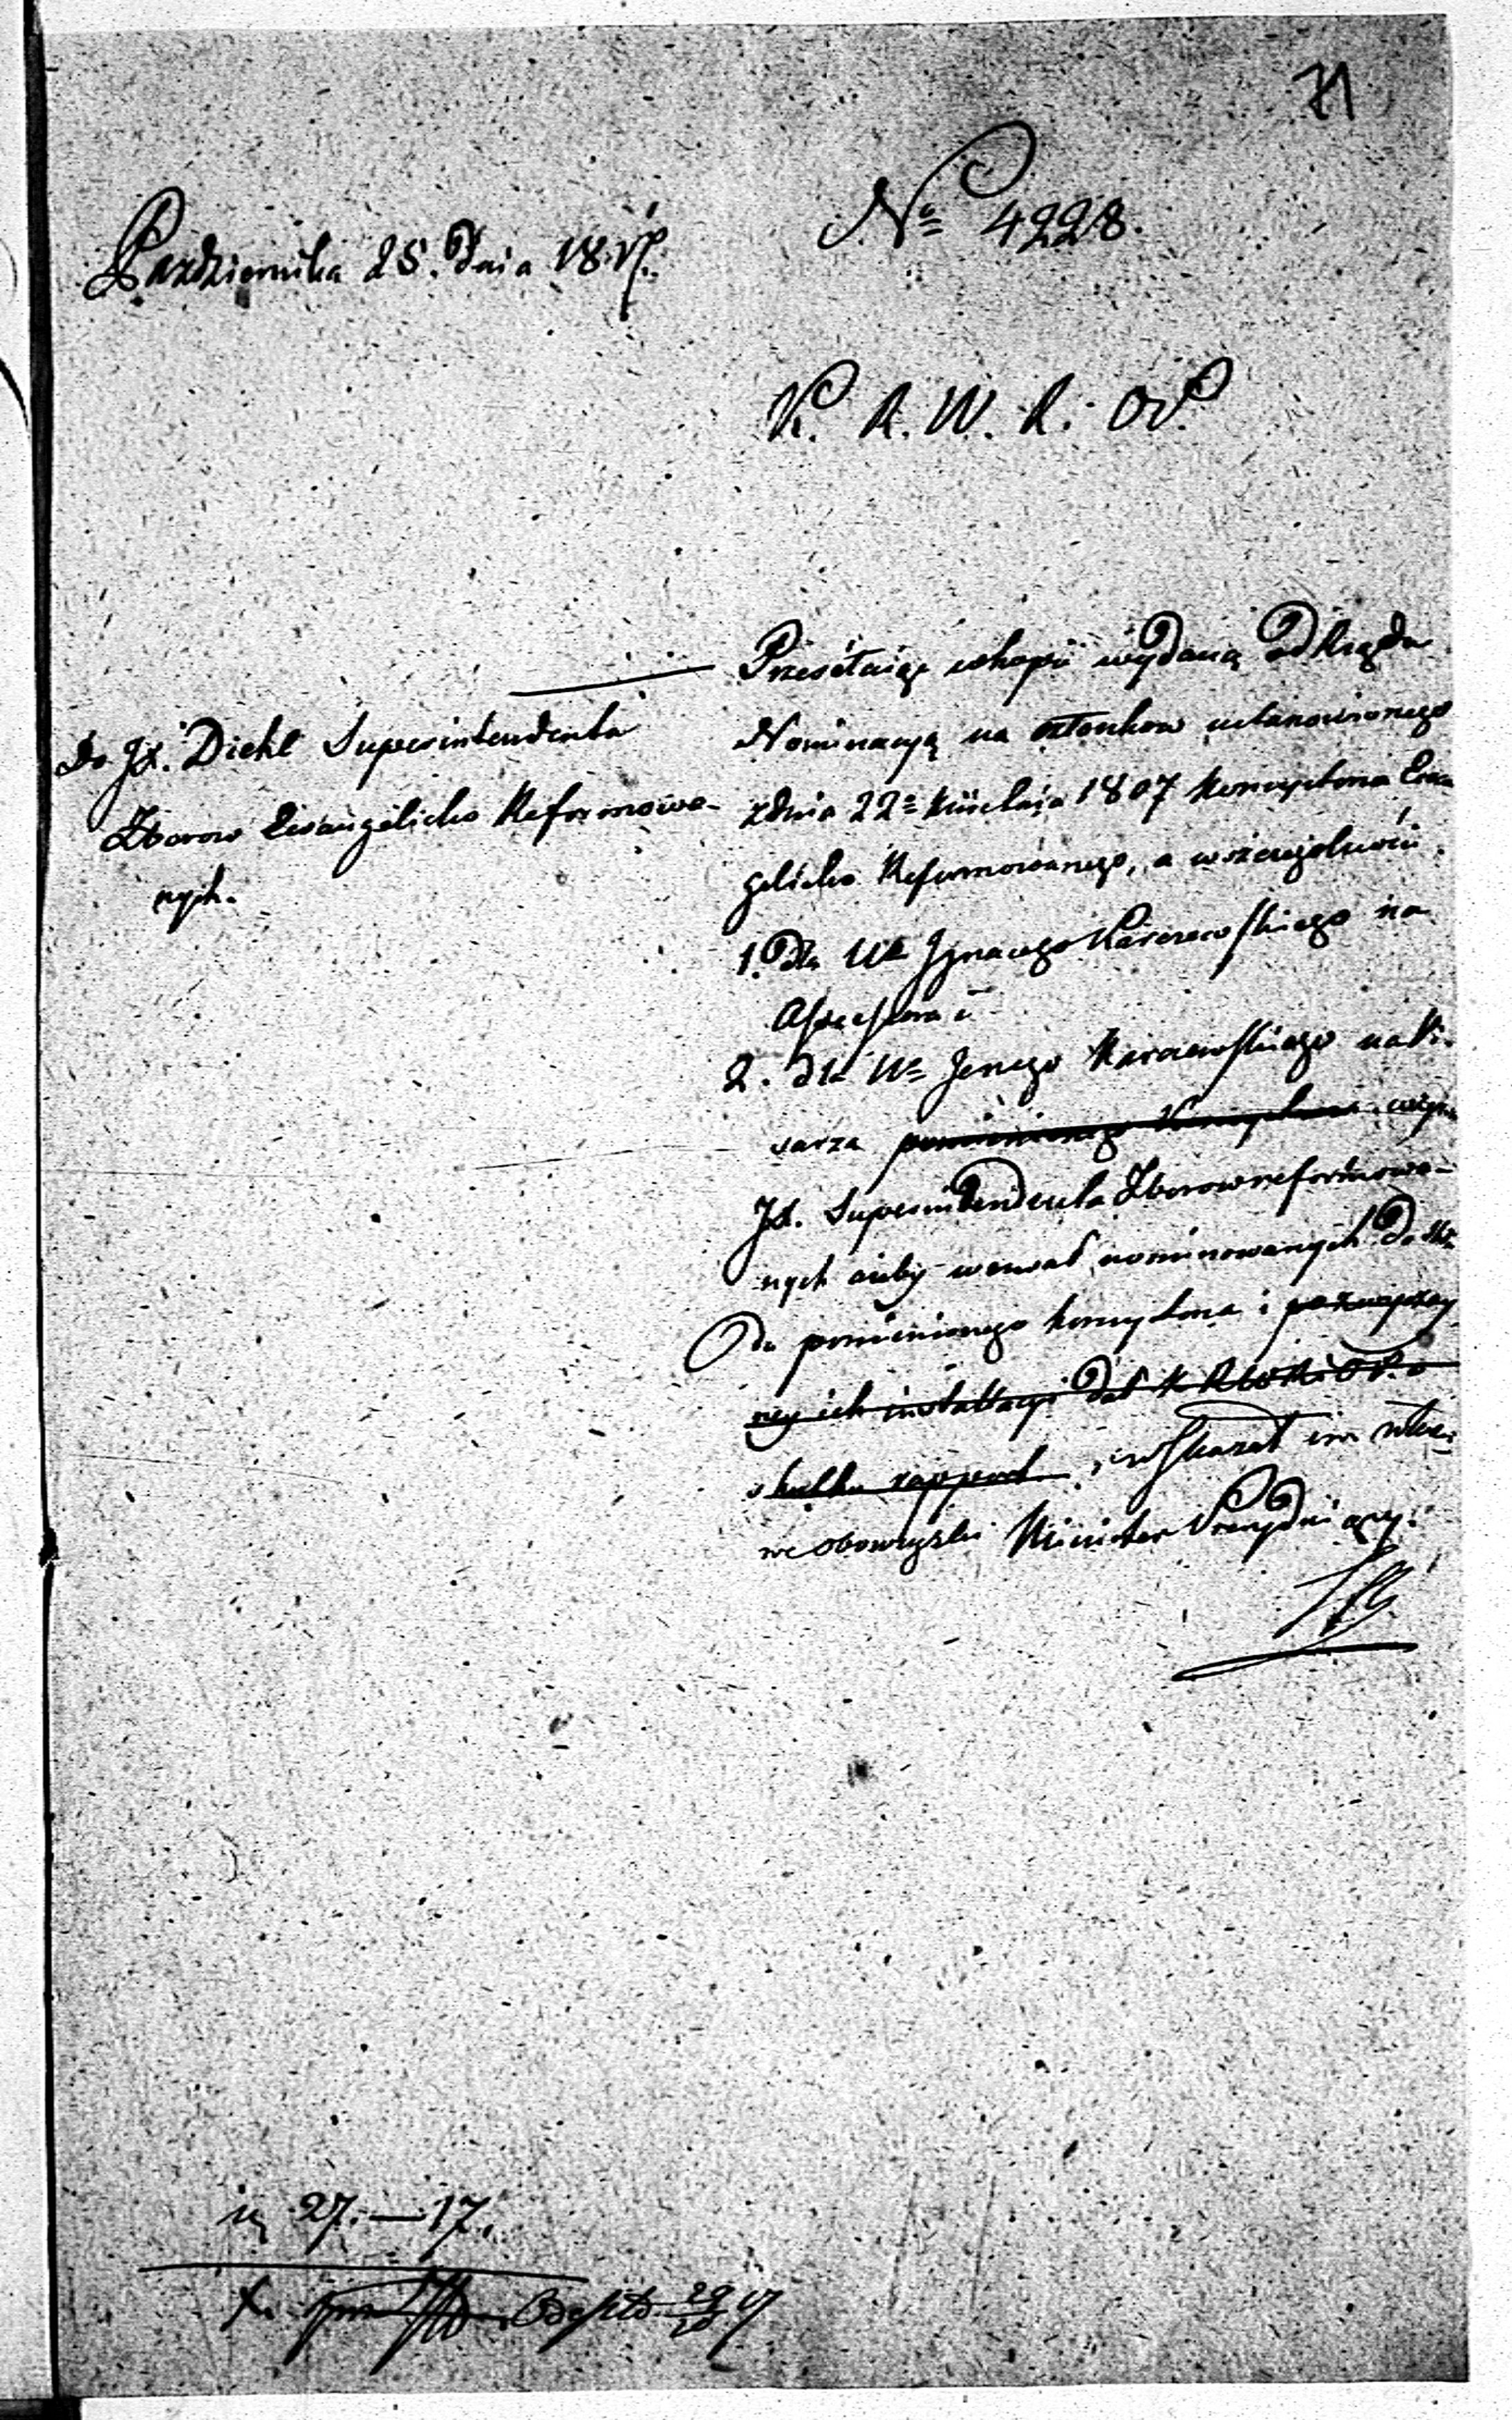 71
Nº 4228.
Pazdziernika 25. Dnia 1817.
K. R. W. R. i O P.
Do JX. Diehl Superintendenta
Zborow Ewangelicko Reformowa-
nych.
Przesełaiąc w kopii wydaną od Rządu
Nominacyą na członkow ustanowionego
z dnia 22º 1807 Konsystorza Ewan
gelicko Reformowanego, a w szczegolności
1. dla Ur Ignacego Karczewskiego na
Assessora i
2. dla Ur Jerzego Karczewskiego na Pi-
sarza pomienionego Konsystorza wzywa
JX. Superintendenta Zborow reformowa-
nych ażeby wezwał nominowanych
Do pomienionego konsystorza i
ney ich installacyi dał K R W R i O P. o
skutku rapport i wskazał im
we obowiązki Minister Prezyduiący.
27. — 17.